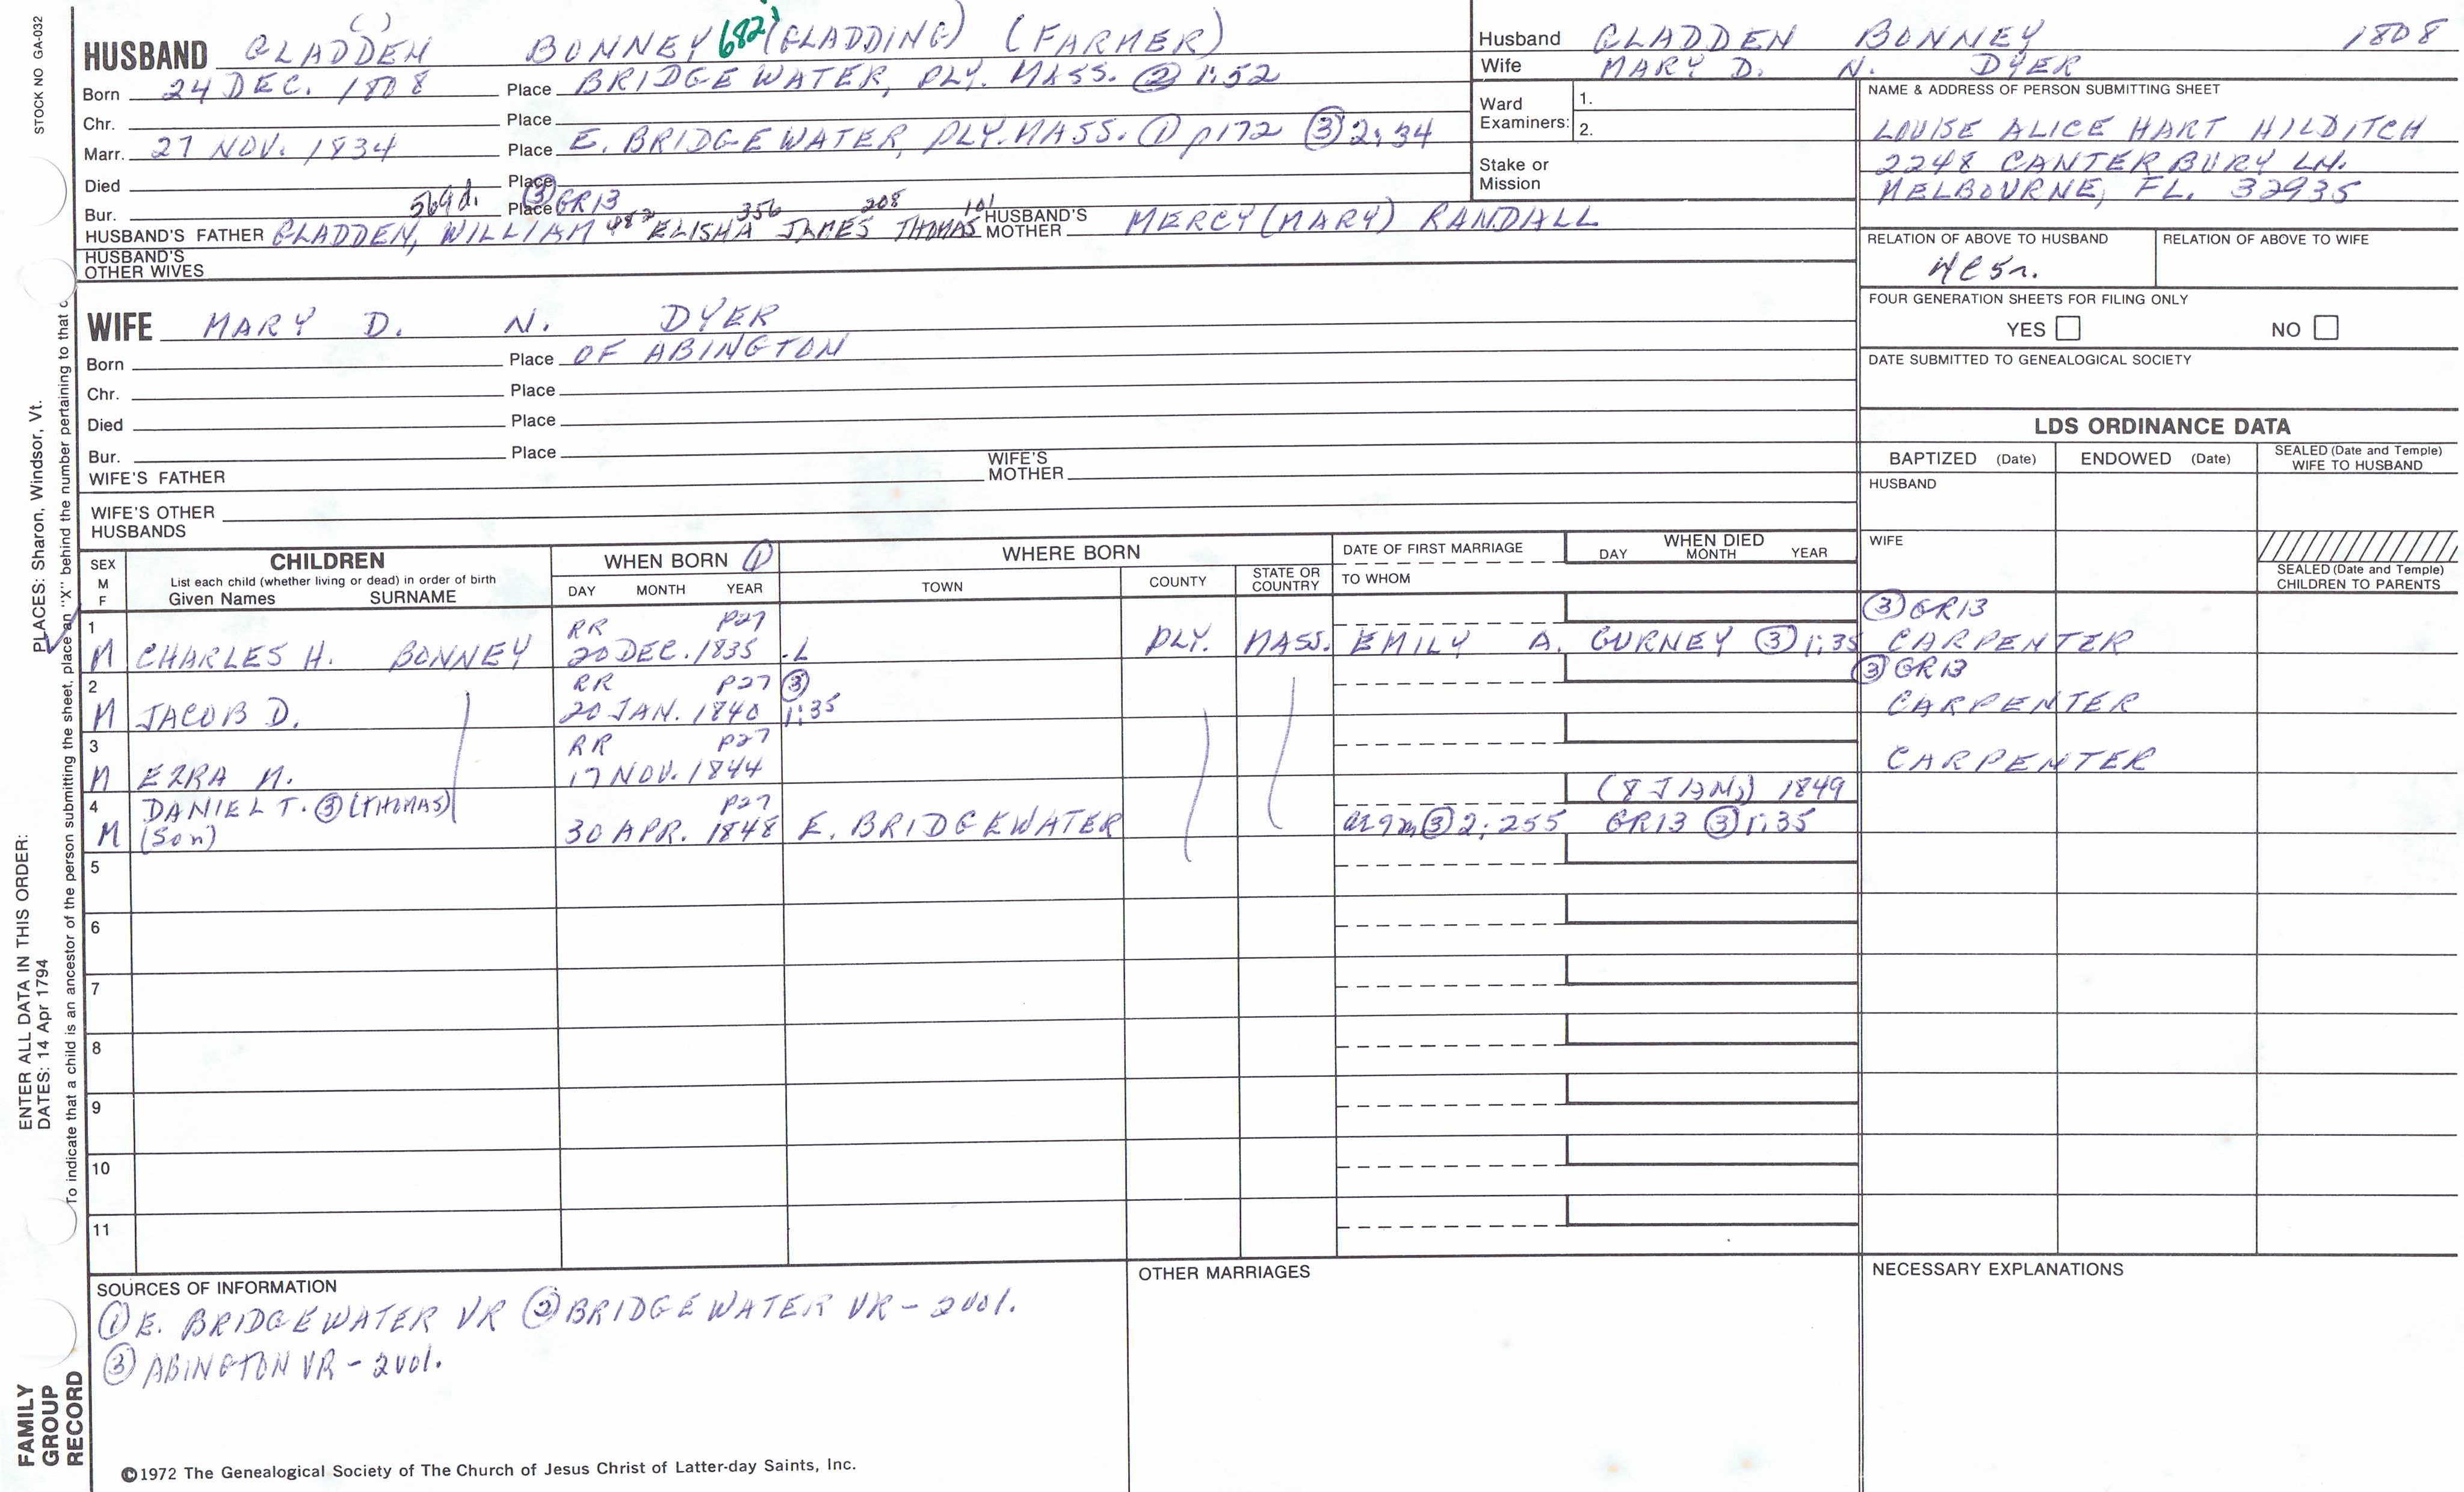 STOCK NO GA-032
HUSBAND GLADDEN BONNEY 682 (GLADDING) (FARMER)
Born 24 DEC. 1808 Place BRIDGEWATER, PLY. MASS. ② 1:52
Chr. Place
Marr. 27 NOV. 1834 Place E. BRIDGEWATER, PLY. MASS. ① p172 ③ 2:34
Died Place
Bur. 569d. Place ③ GR13
HUSBAND'S FATHER GLADDEN, WILLIAM 482 ELISHA 356 JAMES 208 THOMAS 101 HUSBAND'S MOTHER MERCY (MARY) RANDALL
HUSBAND'S OTHER WIVES
Husband GLADDEN BONNEY 1808
Wife MARY D. N. DYER
Ward Examiners: 1.
2.
Stake or Mission
NAME & ADDRESS OF PERSON SUBMITTING SHEET
LOUISE ALICE HART HILDITCH
2248 CANTERBURY LN.
MELBOURNE, FL. 32935
RELATION OF ABOVE TO HUSBAND RELATION OF ABOVE TO WIFE
FOUR GENERATION SHEETS FOR FILING ONLY
YES NO
DATE SUBMITTED TO GENEALOGICAL SOCIETY
WIFE MARY D. N. DYER
Born Place OF ABINGTON
Chr. Place
Died Place
Bur. Place
WIFE'S FATHER WIFE'S MOTHER
WIFE'S OTHER HUSBANDS
LDS ORDINANCE DATA
BAPTIZED (Date) ENDOWED (Date) SEALED (Date and Temple) WIFE TO HUSBAND
HUSBAND
WIFE
SEALED (Date and Temple) CHILDREN TO PARENTS
SEX M F CHILDREN WHEN BORN ① WHERE BORN DATE OF FIRST MARRIAGE WHEN DIED
List each child (whether living or dead) in order of birth
Given Names SURNAME DAY MONTH YEAR TOWN COUNTY STATE OR COUNTRY TO WHOM DAY MONTH YEAR
1 RR P27 ③ GR13
M CHARLES H. BONNEY 20 DEC. 1835 PLY. MASS. EMILY A. GURNEY ③ 1:35 CARPENTER
2 RR P27 ③ ③ GR13
M JACOB D. 20 JAN. 1840 1:35 CARPENTER
3 RR P27
M EZRA N. 17 NOV. 1844 CARPENTER
4 DANIEL T. ③ (THOMAS) P27 (8 JAN.) 1849
M (Son) 30 APR. 1848 E. BRIDGEWATER ③ 2:255 GR13 ③ 1:35
5
6
7
8
9
10
11
SOURCES OF INFORMATION
① E. BRIDGEWATER VR ② BRIDGEWATER VR - 2 vol.
③ ABINGTON VR - 2 vol.
OTHER MARRIAGES
NECESSARY EXPLANATIONS
©1972 The Genealogical Society of The Church of Jesus Christ of Latter-day Saints, Inc.
FAMILY GROUP RECORD
ENTER ALL DATA IN THIS ORDER:
DATES: 14 Apr 1794
PLACES: Sharon, Windsor, Vt.
To indicate that a child is an ancestor of the person submitting the sheet, place an "X" behind the number pertaining to that